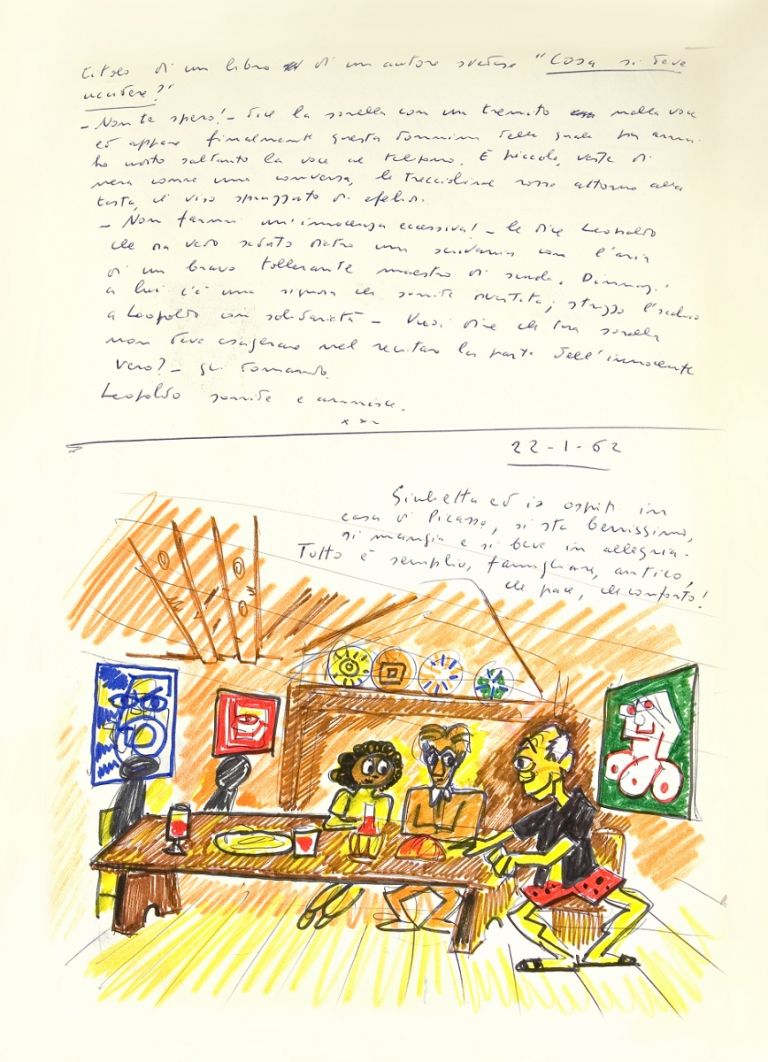 titolo di un libro di un autore svedese "Cosa si deve
uccidere?"
- Non te spero! - dice la sorella con un tremito nella voce
ed appare finalmente questa donnina della quale fin ora
ho udito soltanto la voce al telefono. È piccola, veste di
nero come una conversa, le treccioline rosse attorno alla
testa, il viso spruzzato di efelidi.
- Non farmi un'innocenza eccessiva! - le dice Leopoldo
che ora vedo seduto dietro una scrivania con l'aria
di un bravo tollerante maestro di scuola. Dinnanzi
a lui c'è una signora che sorride divertita; strizzo l'occhio
a Leopoldo con solidarietà - Vuoi dire che tua sorella
non deve esagerare nel recitare la parte dell'innocente
vero? - gli domando.
Leopoldo sorride e annuisce.
x x x
22-1-62
Giulietta ed io ospiti in
casa di Picasso, si sta benissimo,
si mangia e si beve in allegria.
Tutto è semplice, famigliare, antico,
che pace, che conforto!